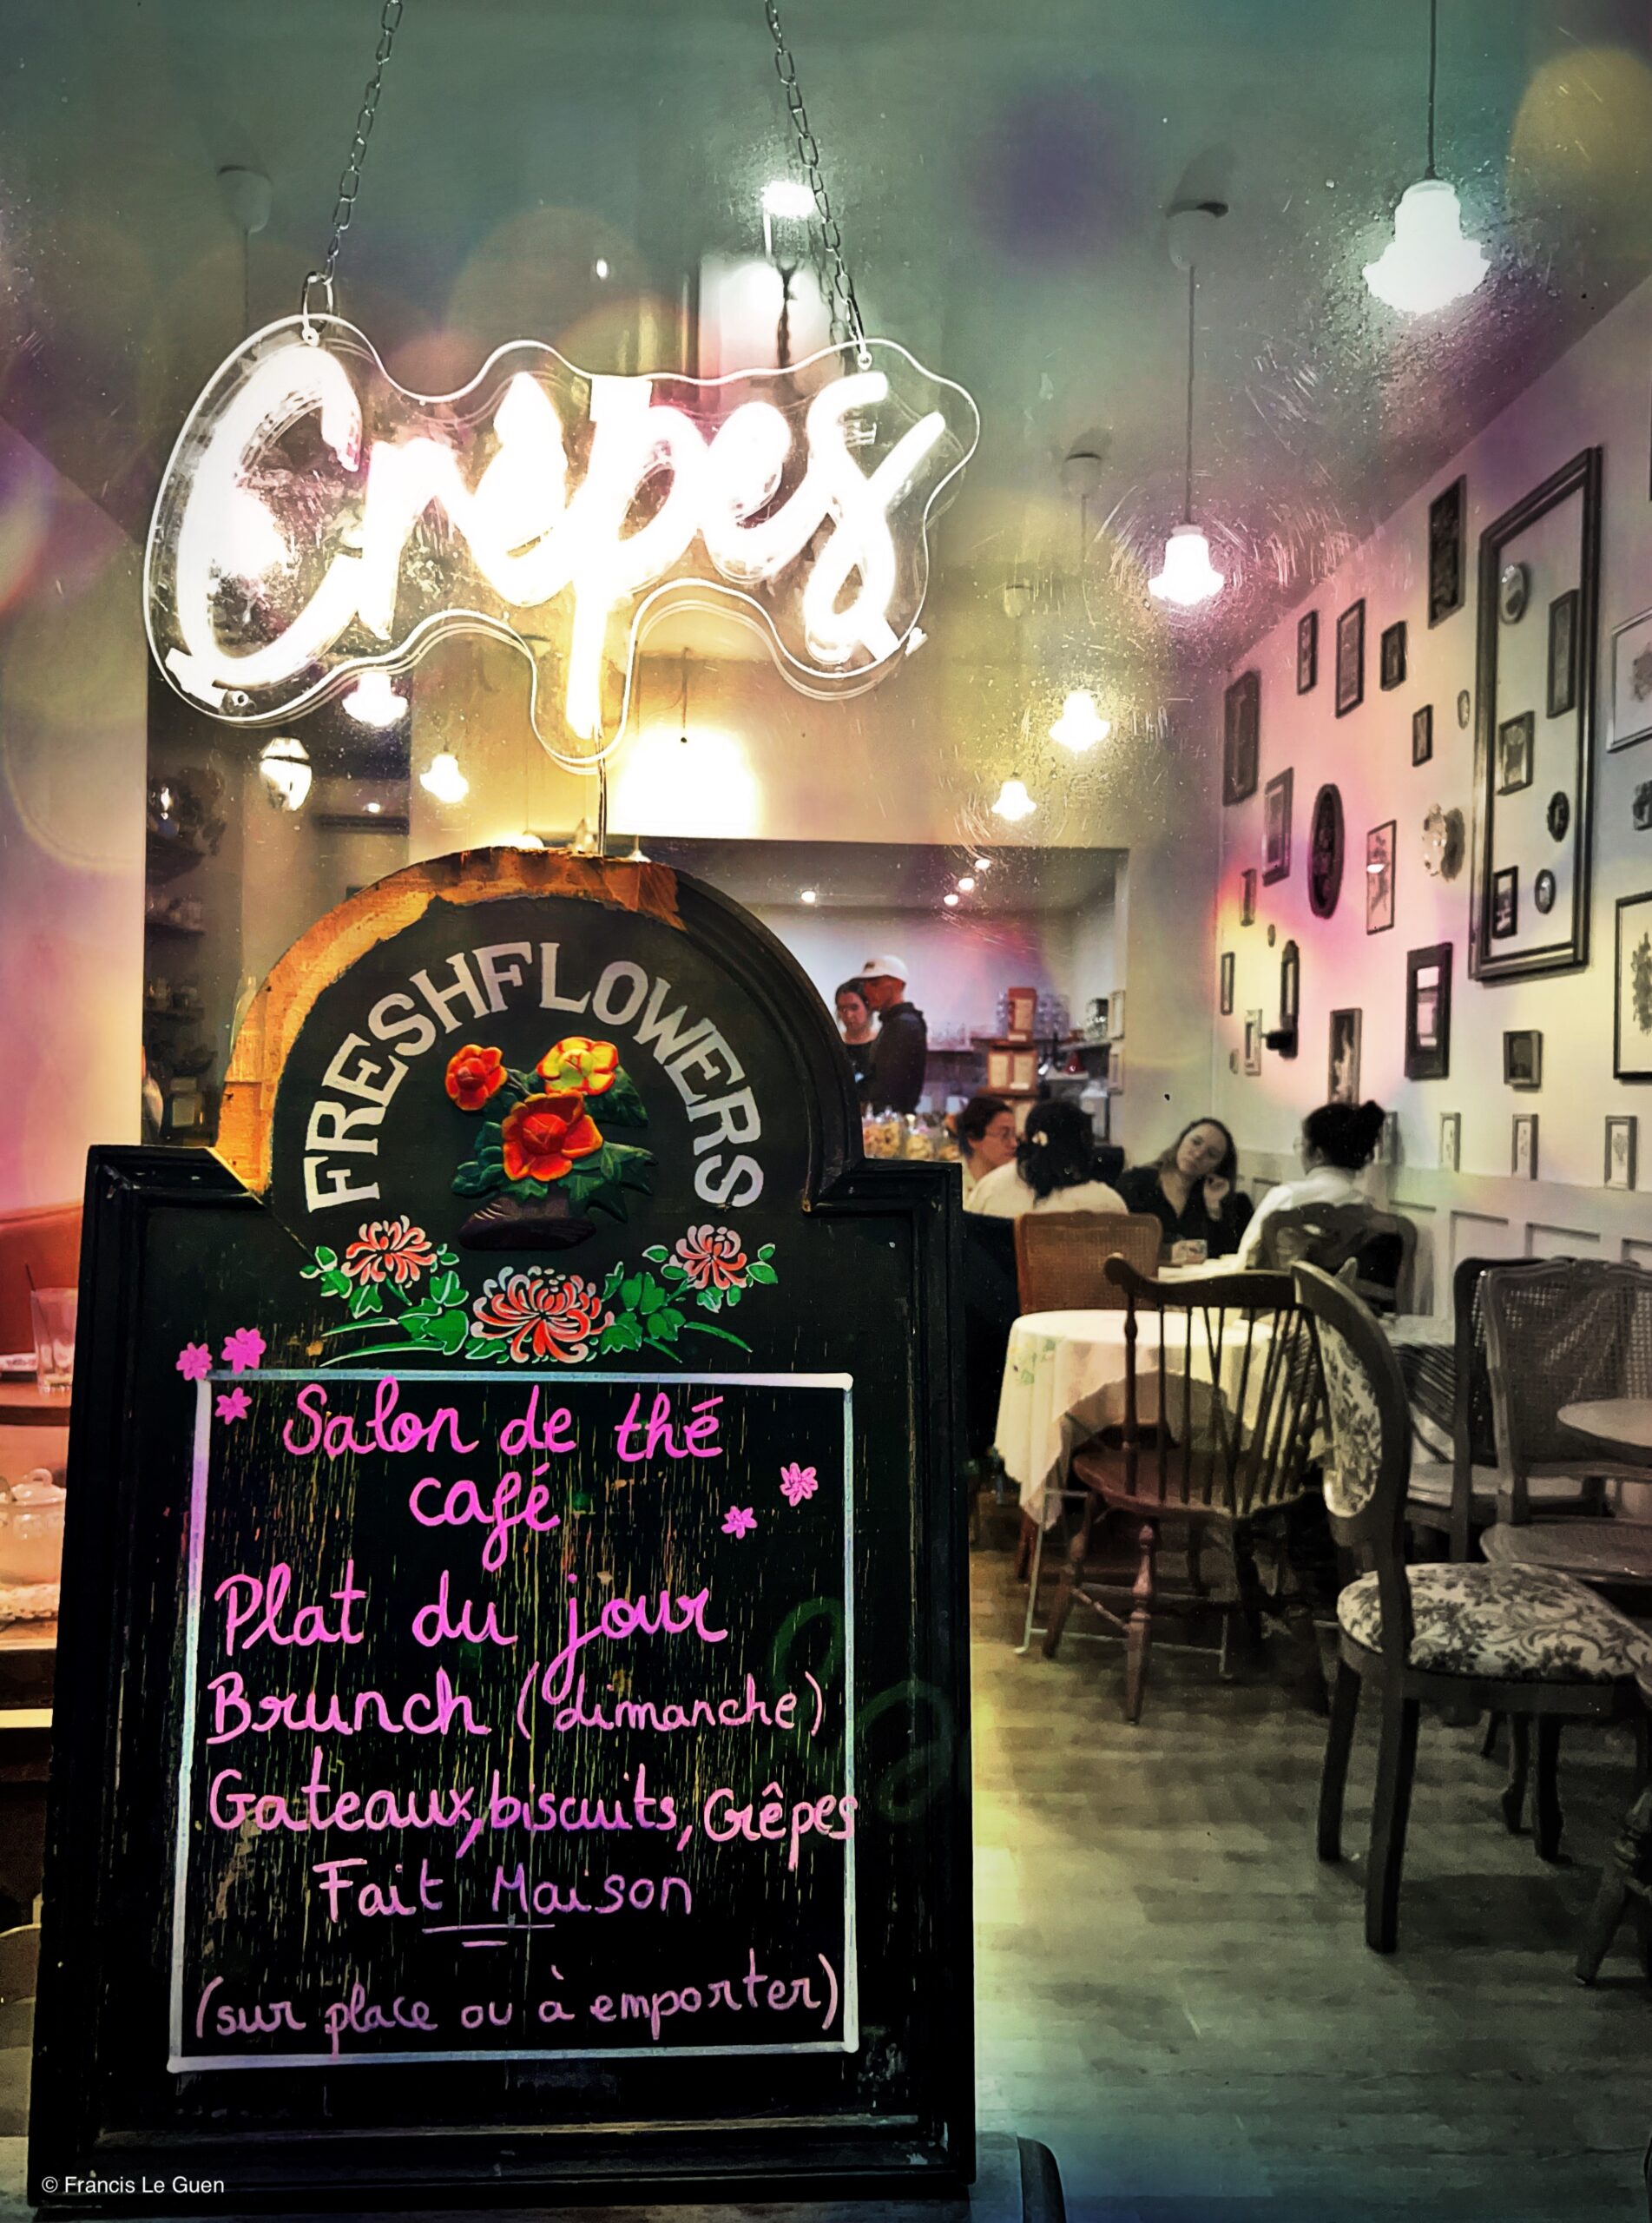 Crêpes
FRESHFLOWERS
Salon de thé
café
Plat du jour
Brunch (dimanche)
Gateaux, biscuits, Crêpes
Fait Maison
(sur place ou à emporter)
© Francis Le Guen